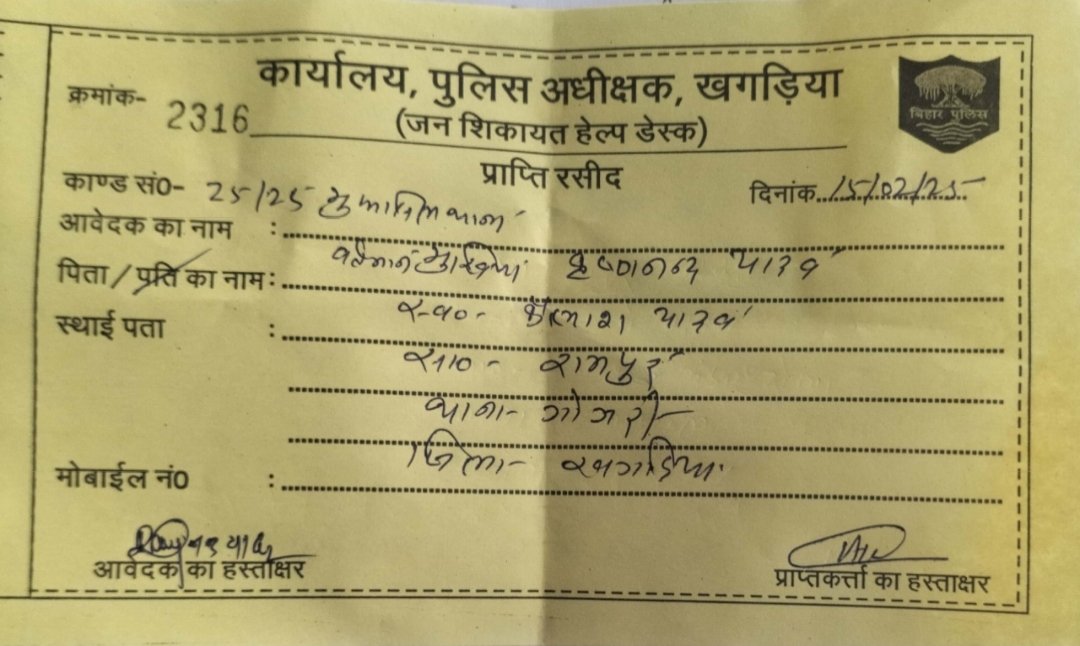 कार्यालय, पुलिस अधीक्षक, खगड़िया
क्रमांक- 2316
(जन शिकायत हेल्प डेस्क)
बिहार पुलिस
प्राप्ति रसीद
काण्ड सं0- 25/25
दिनांक 15/02/25
आवेदक का नाम :
वर्तमान मुखिया कृष्णानन्द यादव
पिता / प्रति का नाम :
स्व0- यादव
स्थाई पता :
सा0- रामपुर
थाना- गोगरी
जिला- खगड़िया
मोबाईल नं0 :
आवेदक का हस्ताक्षर
प्राप्तकर्त्ता का हस्ताक्षर